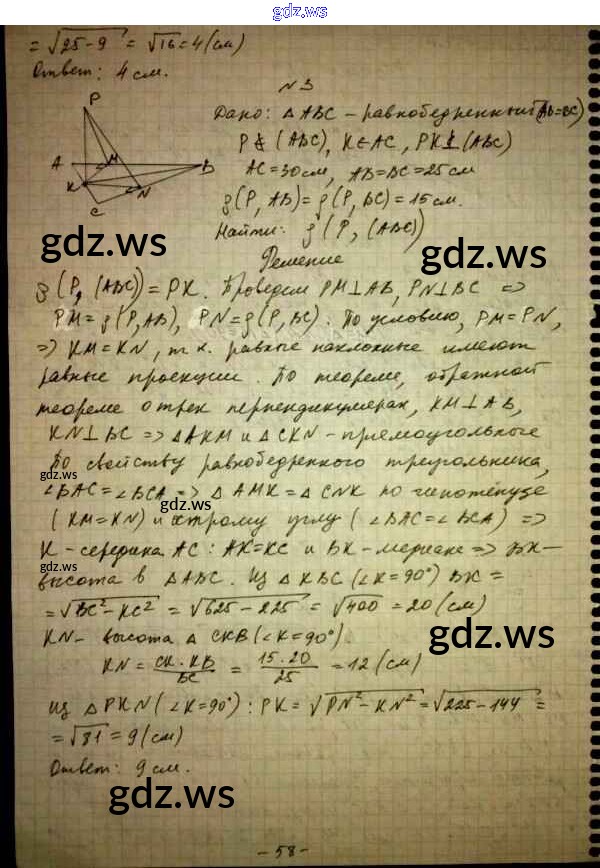 gdz.ws
= √25-9 = √16 = 4 (см)
Ответ: 4 см.
N 3
Дано: △ABC - равнобедренный (AB=BC)
P ∉ (ABC), K ∈ AC, PK ⊥ (ABC)
AC = 30 см, AB = BC = 25 см
ρ(P, AB) = ρ(P, BC) = 15 см.
Найти: ρ(P, (ABC))
P
A
M
B
K
N
C
gdz.ws
gdz.ws
Решение
ρ(P, (ABC)) = PK. Проведем PM ⊥ AB, PN ⊥ BC ⇒
PM = ρ(P, AB), PN = ρ(P, BC). По условию, PM = PN,
⇒ KM = KN, т.к. равные наклонные имеют
равные проекции. По теореме, обратной
теореме о трех перпендикулярах, KM ⊥ AB,
KN ⊥ BC ⇒ △AKM и △CKN - прямоугольные
По свойству равнобедренного треугольника,
gdz.ws
∠BAC = ∠BCA ⇒ △AMK = △CNK по гипотенузе
gdz.ws
(KM = KN) и острому углу (∠BAC = ∠BCA) ⇒
K - середина AC: AK = KC и BK - медиана ⇒ BK -
gdz.ws
высота в △ABC. Из △KBC (∠K = 90°) BK =
= √BC² - KC² = √625 - 225 = √400 = 20 (см)
KN - высота △CKB (∠K = 90°).
gdz.ws
KN = CK · KB / BC = 15 · 20 / 25 = 12 (см)
Из △PKN (∠K = 90°): PK = √PN² - KN² = √225 - 144 =
= √81 = 9 (см)
Ответ: 9 см.
gdz.ws
- 58 -
gdz.ws